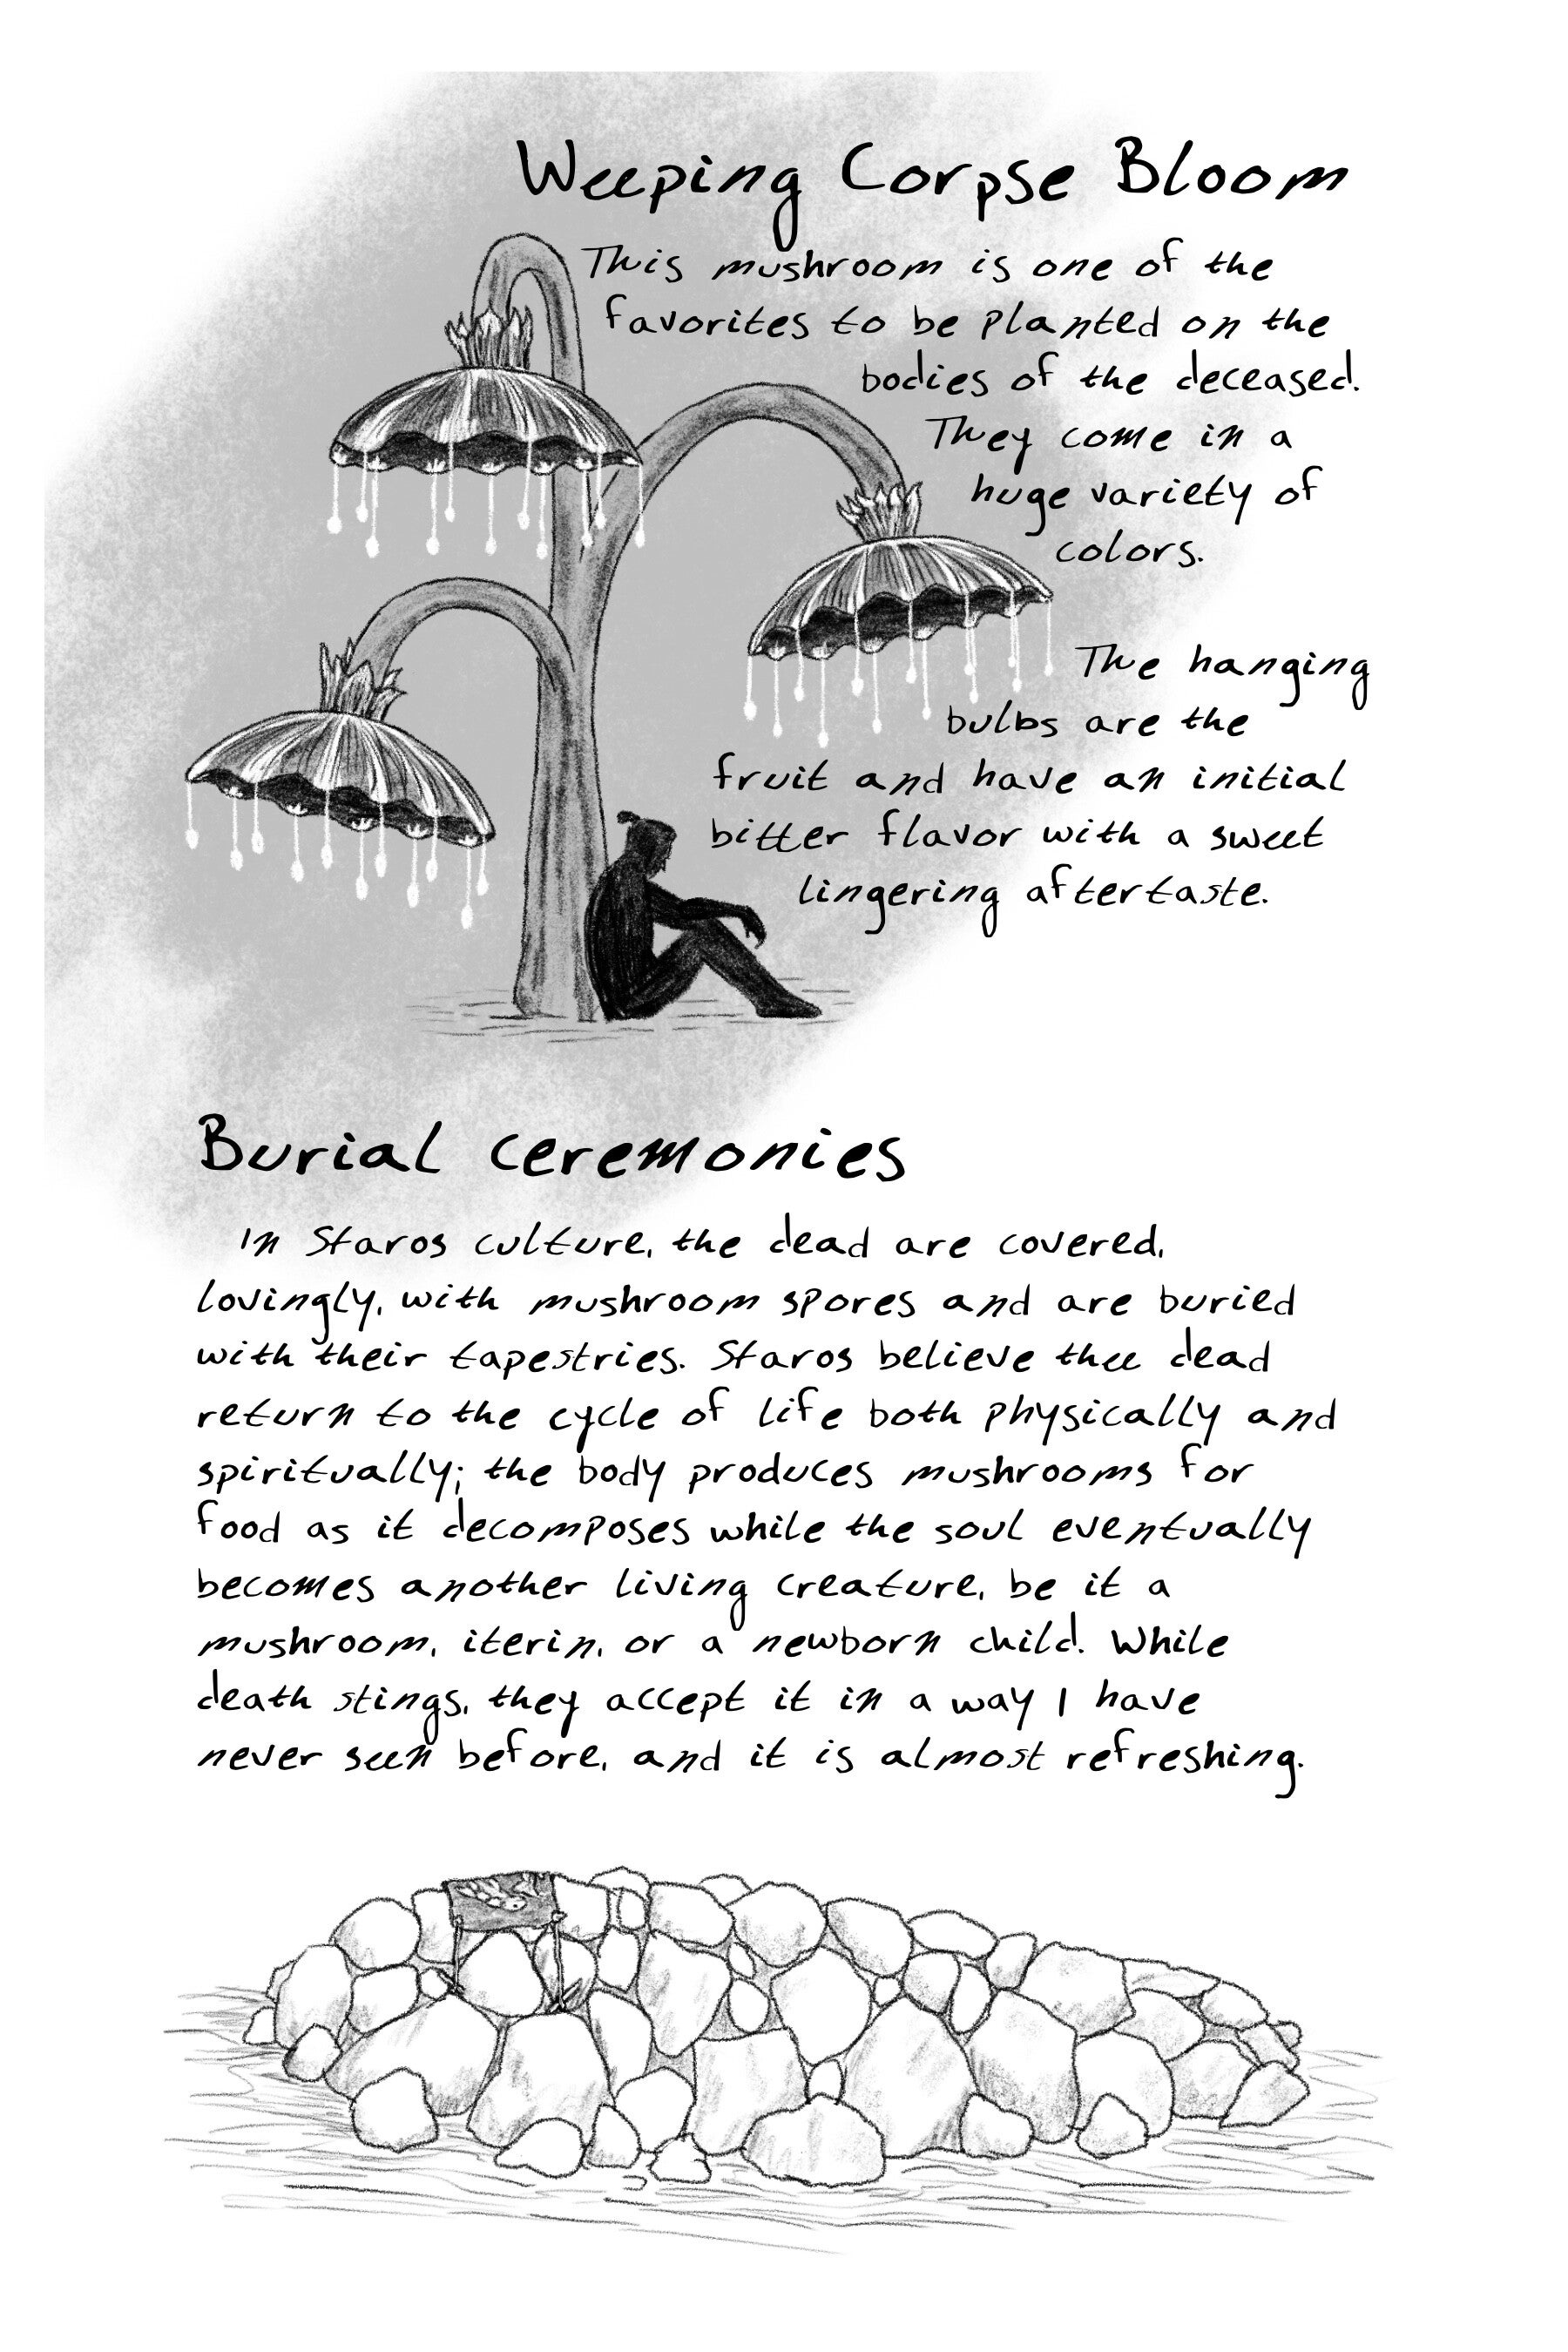 Weeping Corpse Bloom
This mushroom is one of the
favorites to be planted on the
bodies of the deceased.
They come in a
huge variety of
colors.
The hanging
bulbs are the
fruit and have an initial
bitter flavor with a sweet
lingering aftertaste.
Burial ceremonies
In Staros culture, the dead are covered,
lovingly, with mushroom spores and are buried
with their tapestries. Staros believe thee dead
return to the cycle of life both physically and
spiritually; the body produces mushrooms for
food as it decomposes while the soul eventually
becomes another living creature, be it a
mushroom, iterin, or a newborn child. While
death stings, they accept it in a way I have
never seen before, and it is almost refreshing.